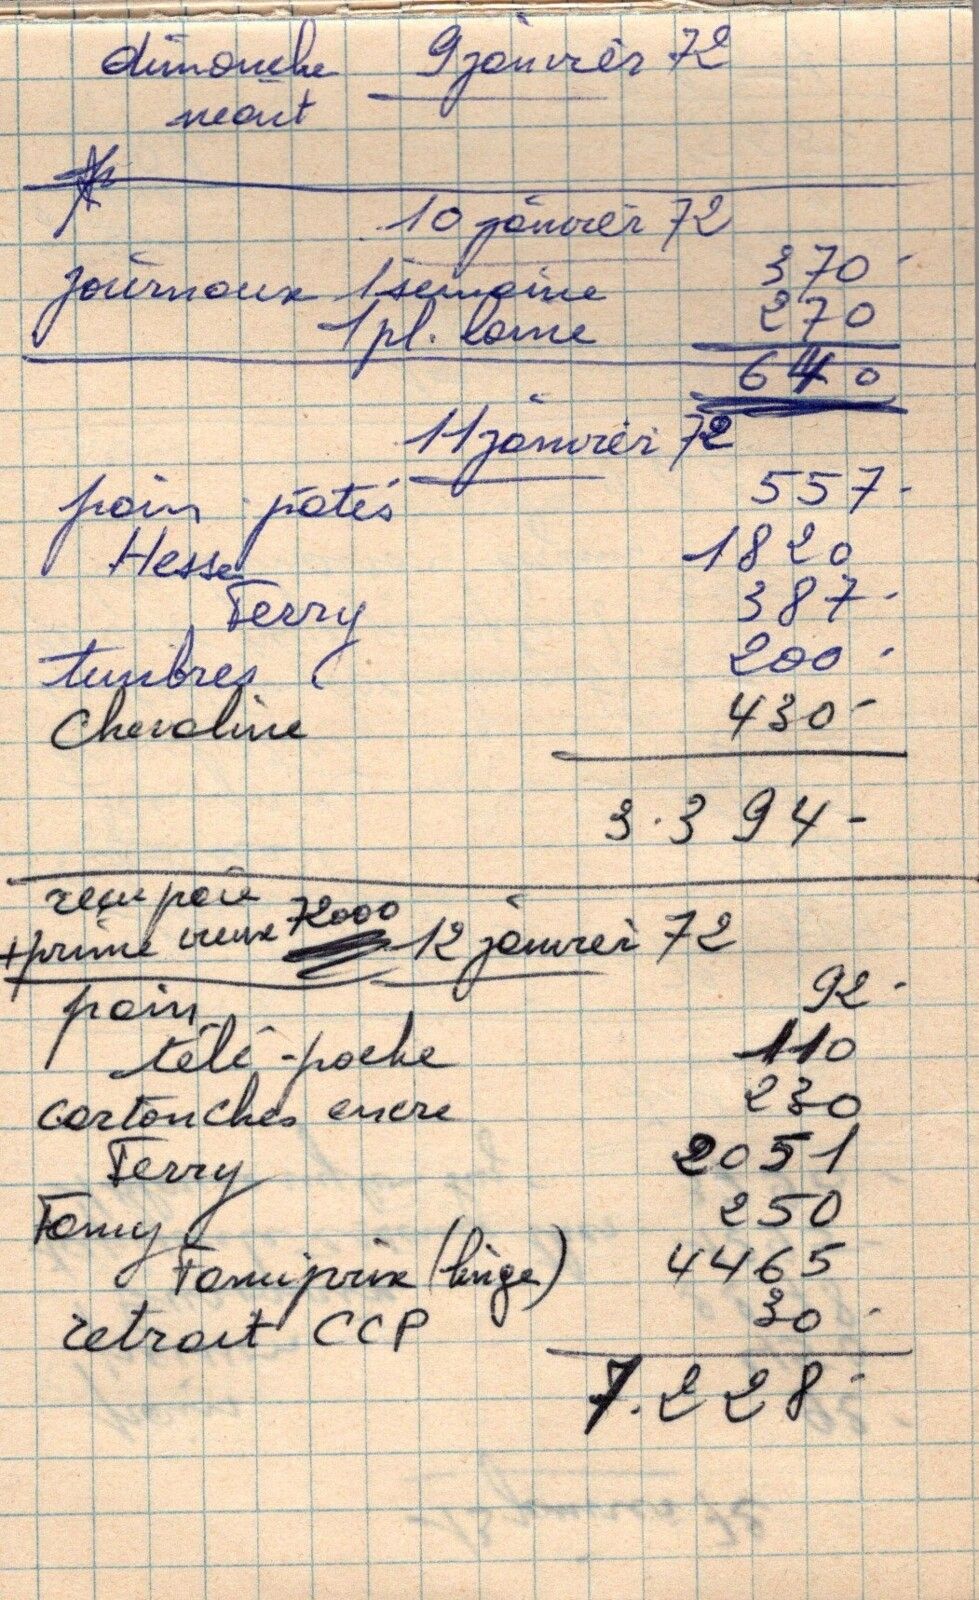 dimanche 9 janvier 72
néant
10 janvier 72
journaux 1 semaine 370-
1 pl. lame 270
640
11 janvier 72
pain patés 557-
Hesse 1820
Ferry 387-
timbres 200-
Chevaline 430-
3.394-
reçu paie
+ prime creux 72000 12 janvier 72
pain 92-
télé-poche 110
cartouches encre 230
Ferry 2051
Famy 250
Famiprix (linge) 4465
retrait CCP 30-
7.228-